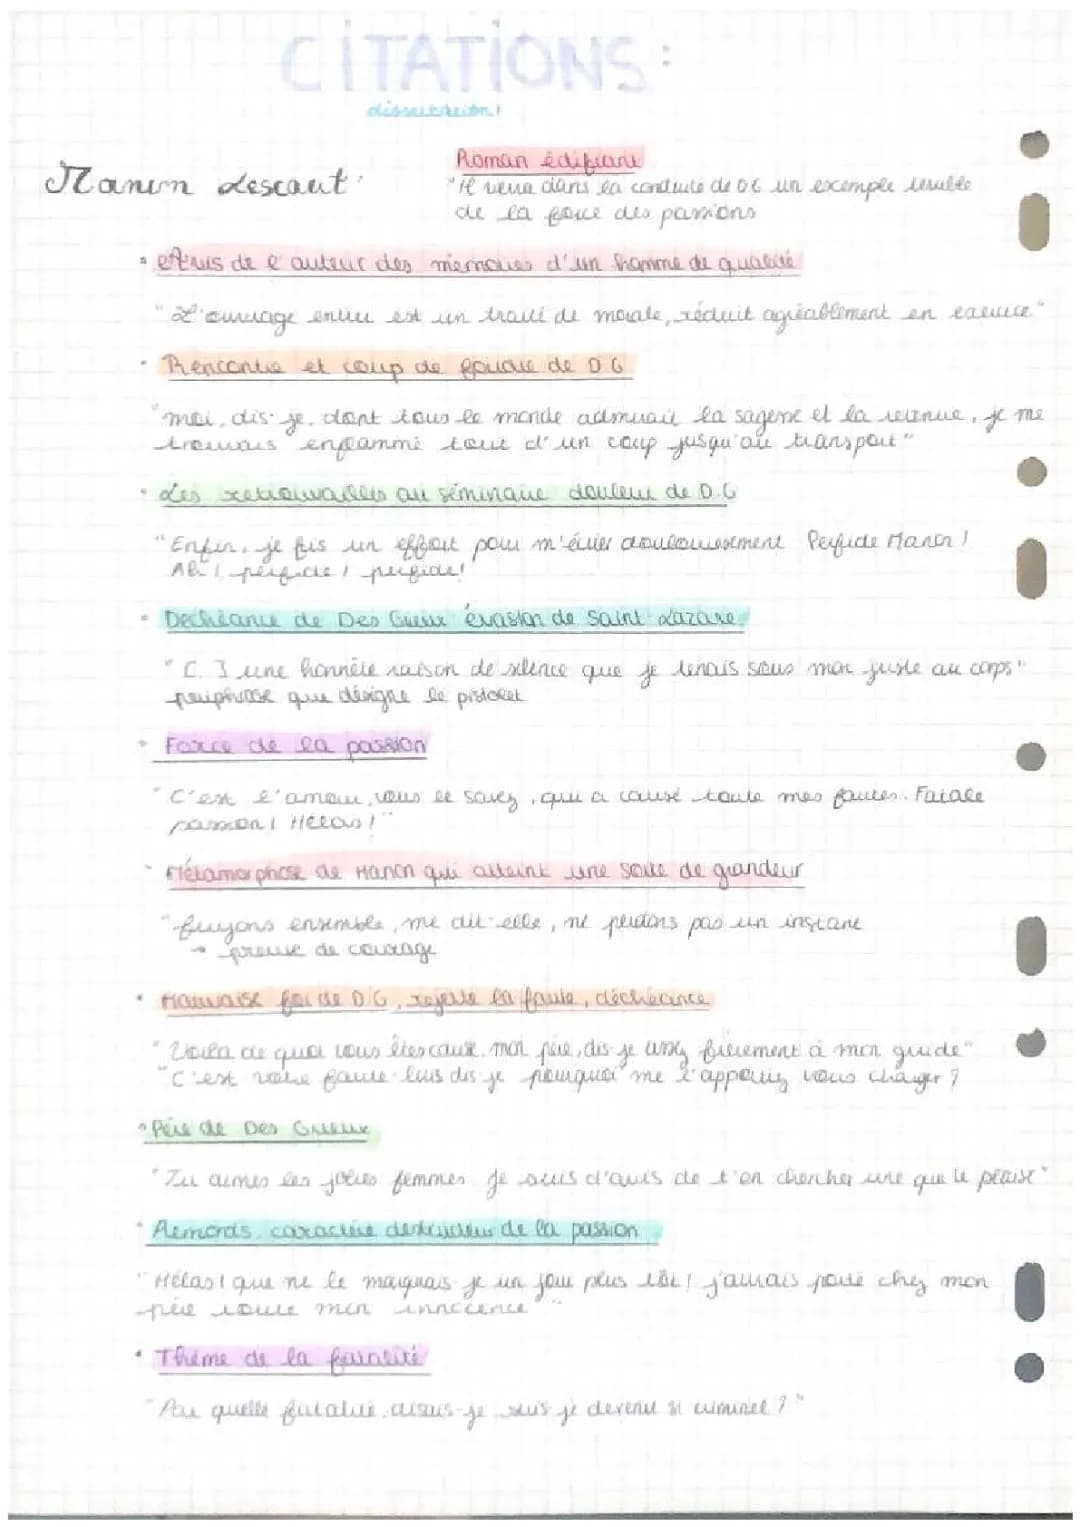 CITATIONS:
dissertation!
Roman édifiant
Manon Lescaut:
"Il verra dans la conduite de DG un exemple terrible
de la force des passions
• Avis de l'auteur des mémoires d'un homme de qualité
"L'ouvrage entier est un traité de morale, réduit agréablement en exercice"
• Rencontre et coup de foudre de DG
"moi, dis-je, dont tous le monde admirait la sagesse et la retenue, je me
trouvais enflammé tout d'un coup jusqu'au transport"
• Les retrouvailles au séminaire douleur de D.G
"Enfin, je fis un effort pour m'écrier douloureusement Perfide Manon!
Ah! perfide! perfide!
• Déchéance de Des Grieux évasion de Saint-Lazare
"C. J une honnête raison de silence que je tenais sous mon juste au corps"
périphrase qui désigne le pistolet
• Force de la passion
"C'est l'amour, vous le savez, qui a causé toute mes fautes. Fatale
passion! Hélas!"
• Métamorphose de Manon qui atteint une sorte de grandeur
"fuyons ensemble, me dit-elle, ne perdons pas un instant
→ preuve de courage
• Mauvaise foi de DG, rejette la faute, déchéance
"Voilà de quoi vous êtes cause, mon père, dis-je assez fièrement à mon guide"
"C'est votre faute lui dis-je pourquoi me l'apportiez vous charger?
• Père de Des Grieux
"Tu aimes les jolies femmes. Je suis d'avis de t'en chercher une qui te plaise"
• Remords, caractère destructeur de la passion
"Hélas! que ne le marquais-je un jour plus tôt! j'aurais porté chez mon
père toute mon innocence"
• Thème de la fatalité
"Par quelle fatalité, disais-je, suis-je devenu si criminel?"